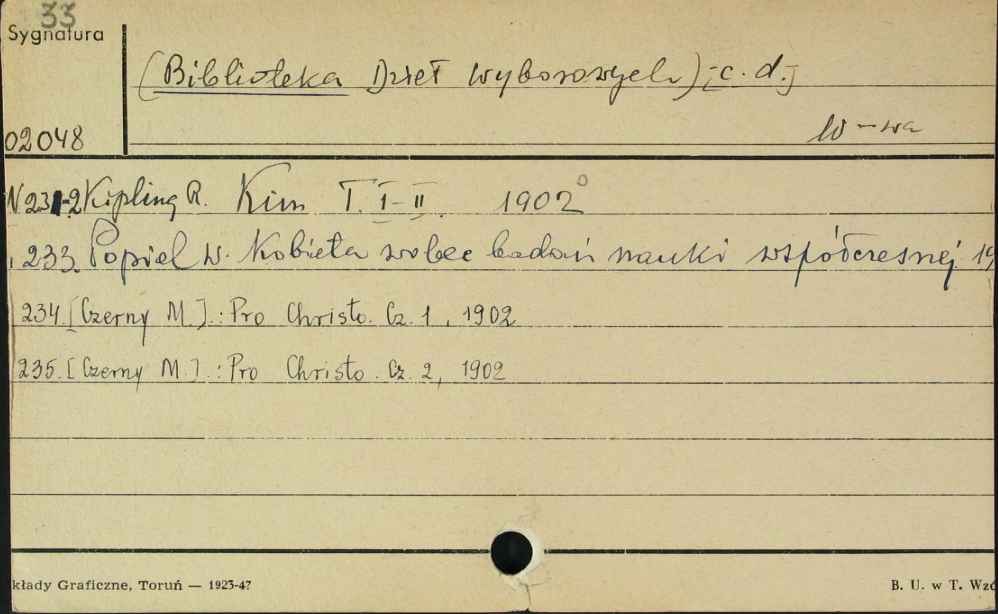 33
Sygnatura
(Biblioteka Dzieł Wyborowych) ;c. d.;
02048
W-wa
N 231-2 Kipling R. Kim T. I-II. 1902
233. Popiel W. Kobieta wobec badań nauki współczesnej 19
234. [Czerny M.] : Pro Christo. Cz. 1, 1902
235. [Czerny M.] : Pro Christo. Cz. 2, 1902
kłady Graficzne, Toruń — 1923-47
B. U. w T. Wzó